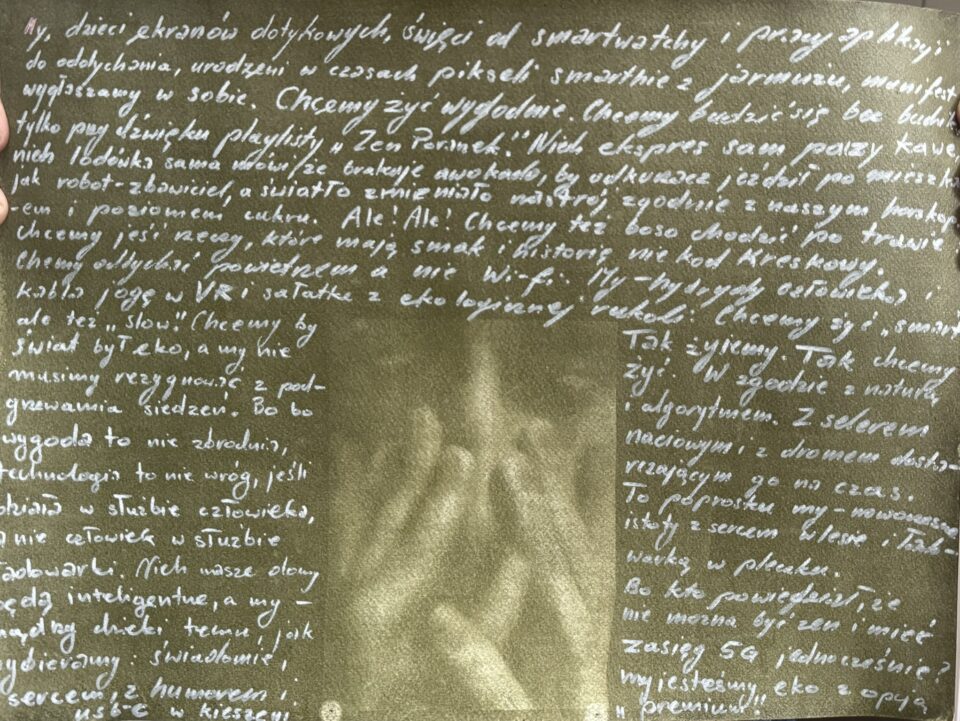 My, dzieci ekranów dotykowych, święci od smartwatchy i pracy aplikacji
do oddychania, urodzeni w czasach pikseli smartnie z jarmużu, manifest
wygłaszamy w sobie. Chcemy żyć wygodnie. Chcemy budzić się bez budzik
tylko przy dźwięku playlisty „Zen Poranek." Niech ekspres sam parzy kawę,
niech lodówka sama mówi, że brakuje awokado, by odkurzacz jeździł po mieszka
jak robot-zbawiciel, a światło zmieniało nastrój zgodnie z naszym horoskop
-em i poziomem cukru. Ale! Ale! Chcemy też boso chodzić po trawie
chcemy jeść rzeczy, które mają smak i historię nie kod kreskowy.
Chcemy oddychać powietrzem a nie Wi-fi. My-hybrydy człowieka i
kabla jogę w VR i sałatkę z ekologicznej rukoli. Chcemy żyć „smart
ale też „slow". Chcemy by
świat był eko, a my nie
musimy rezygnować z pod-
grzewania siedzeń. Bo bo
wygoda to nie zbrodnia,
technologia to nie wróg, jeśli
działa w służbie człowieka,
a nie człowiek w służbie
ładowarki. Niech nasze domy
będą inteligentne, a my -
mądrzy dzięki temu, jak
wybieramy: świadomie,
sercem, z humorem i
USB-C w kieszeni
Tak żyjemy. Tak chcemy
żyć. W zgodzie z naturą
i algorytmem. Z selerem
naciowym i z dronem dosta-
rczającym go na czas.
To poprostu my - nowoczesne
istoty z sercem w lesie i ład-
warką w plecaku.
Bo kto powiedział, że
nie można być zen i mieć
zasięg 5G jednocześnie?
my jesteśmy eko z opcją
„premium"!